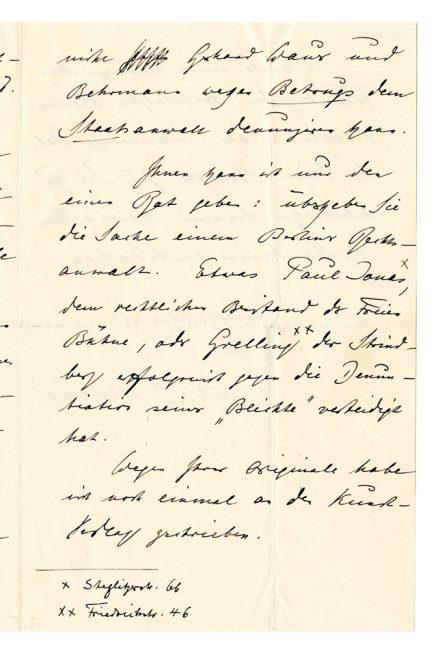 nicht und
Behrmann wegen Betrugs dem
Staatsanwalt denunzieren kann.
Ihnen kann ich nur den
einen Rat geben: übergeben Sie
die Sache einem Berliner Rechts-
anwalt. Etwas Paul Jonas x,
dem rechtlichen Beistand der Freien
Bühne, oder Grelling xx der Strind-
berg erfolgreich gegen die Denun-
tiation seiner „Beichte" verteidigt
hat.
Wegen Ihrer Originale habe
ich noch einmal an den Kunst-
Verlag geschrieben.
x Steglitzerstr. 66
xx Friedrichstr. 46